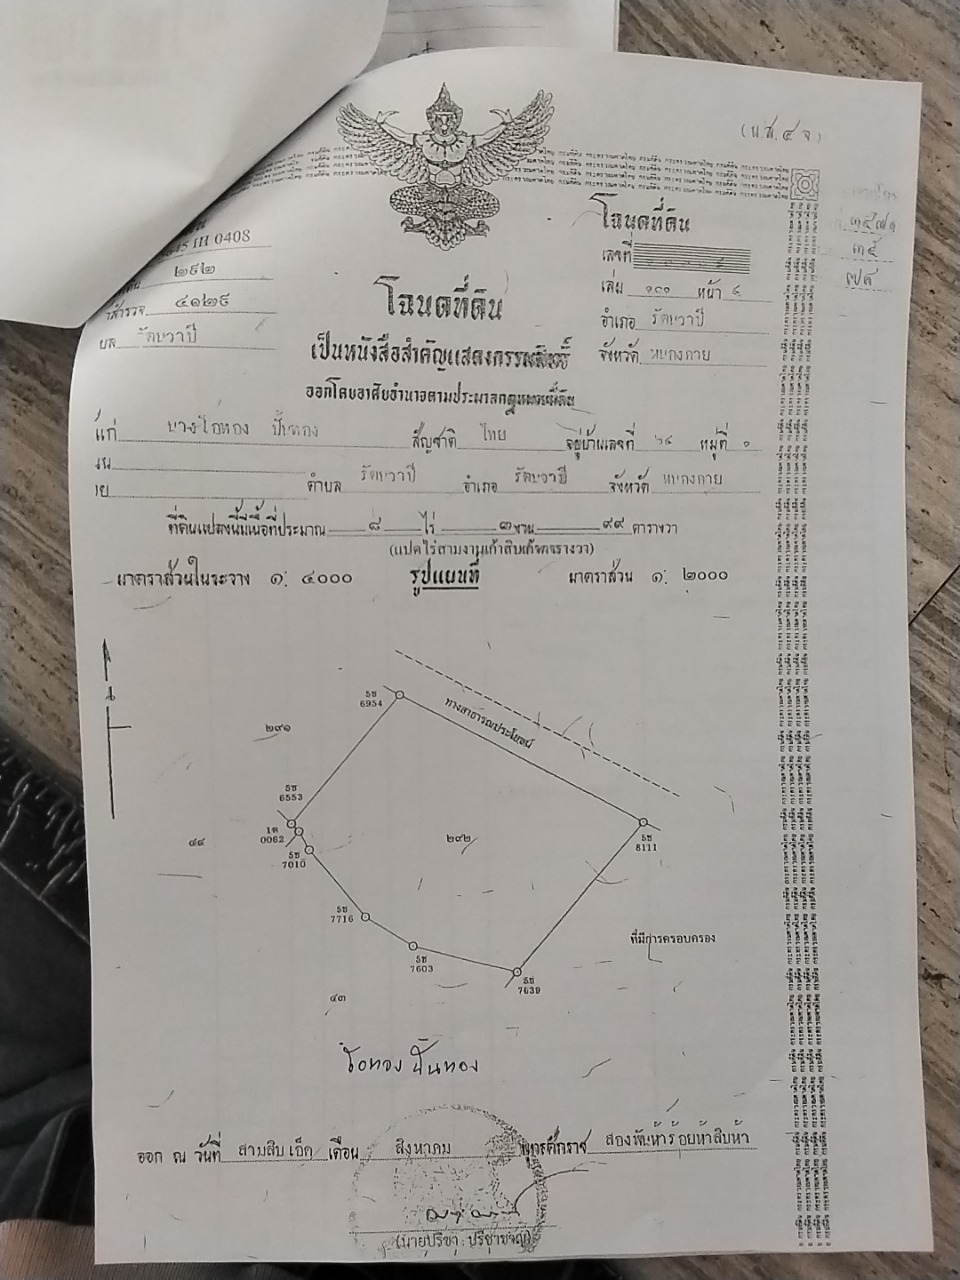 (น.ส. ๔ จ)
III 0408
๒๙๒
๔๑๒๙
รัตนวาปี
โฉนดที่ดิน
เลขที่
เล่ม ๑๓๐ หน้า ๔
อำเภอ รัตนวาปี
จังหวัด หนองคาย
โฉนดที่ดิน
เป็นหนังสือสำคัญแสดงกรรมสิทธิ์
ออกโดยอาศัยอำนาจตามประมวลกฎหมายที่ดิน
สัญชาติ ไทย อยู่บ้านเลขที่ ๖๔ หมู่ที่ ๑
ตำบล รัตนวาปี อำเภอ รัตนวาปี จังหวัด หนองคาย
ที่ดินแปลงนี้มีเนื้อที่ประมาณ ๘ ไร่ ๓ งาน ๙๙ ตารางวา
(แปดไร่สามงานเก้าสิบเก้าตารางวา)
มาตราส่วนในระวาง ๑: ๔๐๐๐ รูปแผนที่ มาตราส่วน ๑: ๒๐๐๐
น
5ซ
6954
ทางสาธารณประโยชน์
๒๙๑
5ซ
6553
1ด
0062
๔๔
5ซ
7010
๒๙๒
5ซ
8111
5ซ
7716
ที่มีการครอบครอง
5ซ
7603
5ซ
7639
๔๓
ออก ณ วันที่ สามสิบเอ็ด เดือน สิงหาคม พุทธศักราช สองพันห้าร้อยห้าสิบห้า
(นายปรีชา ปรีชาชาญ)